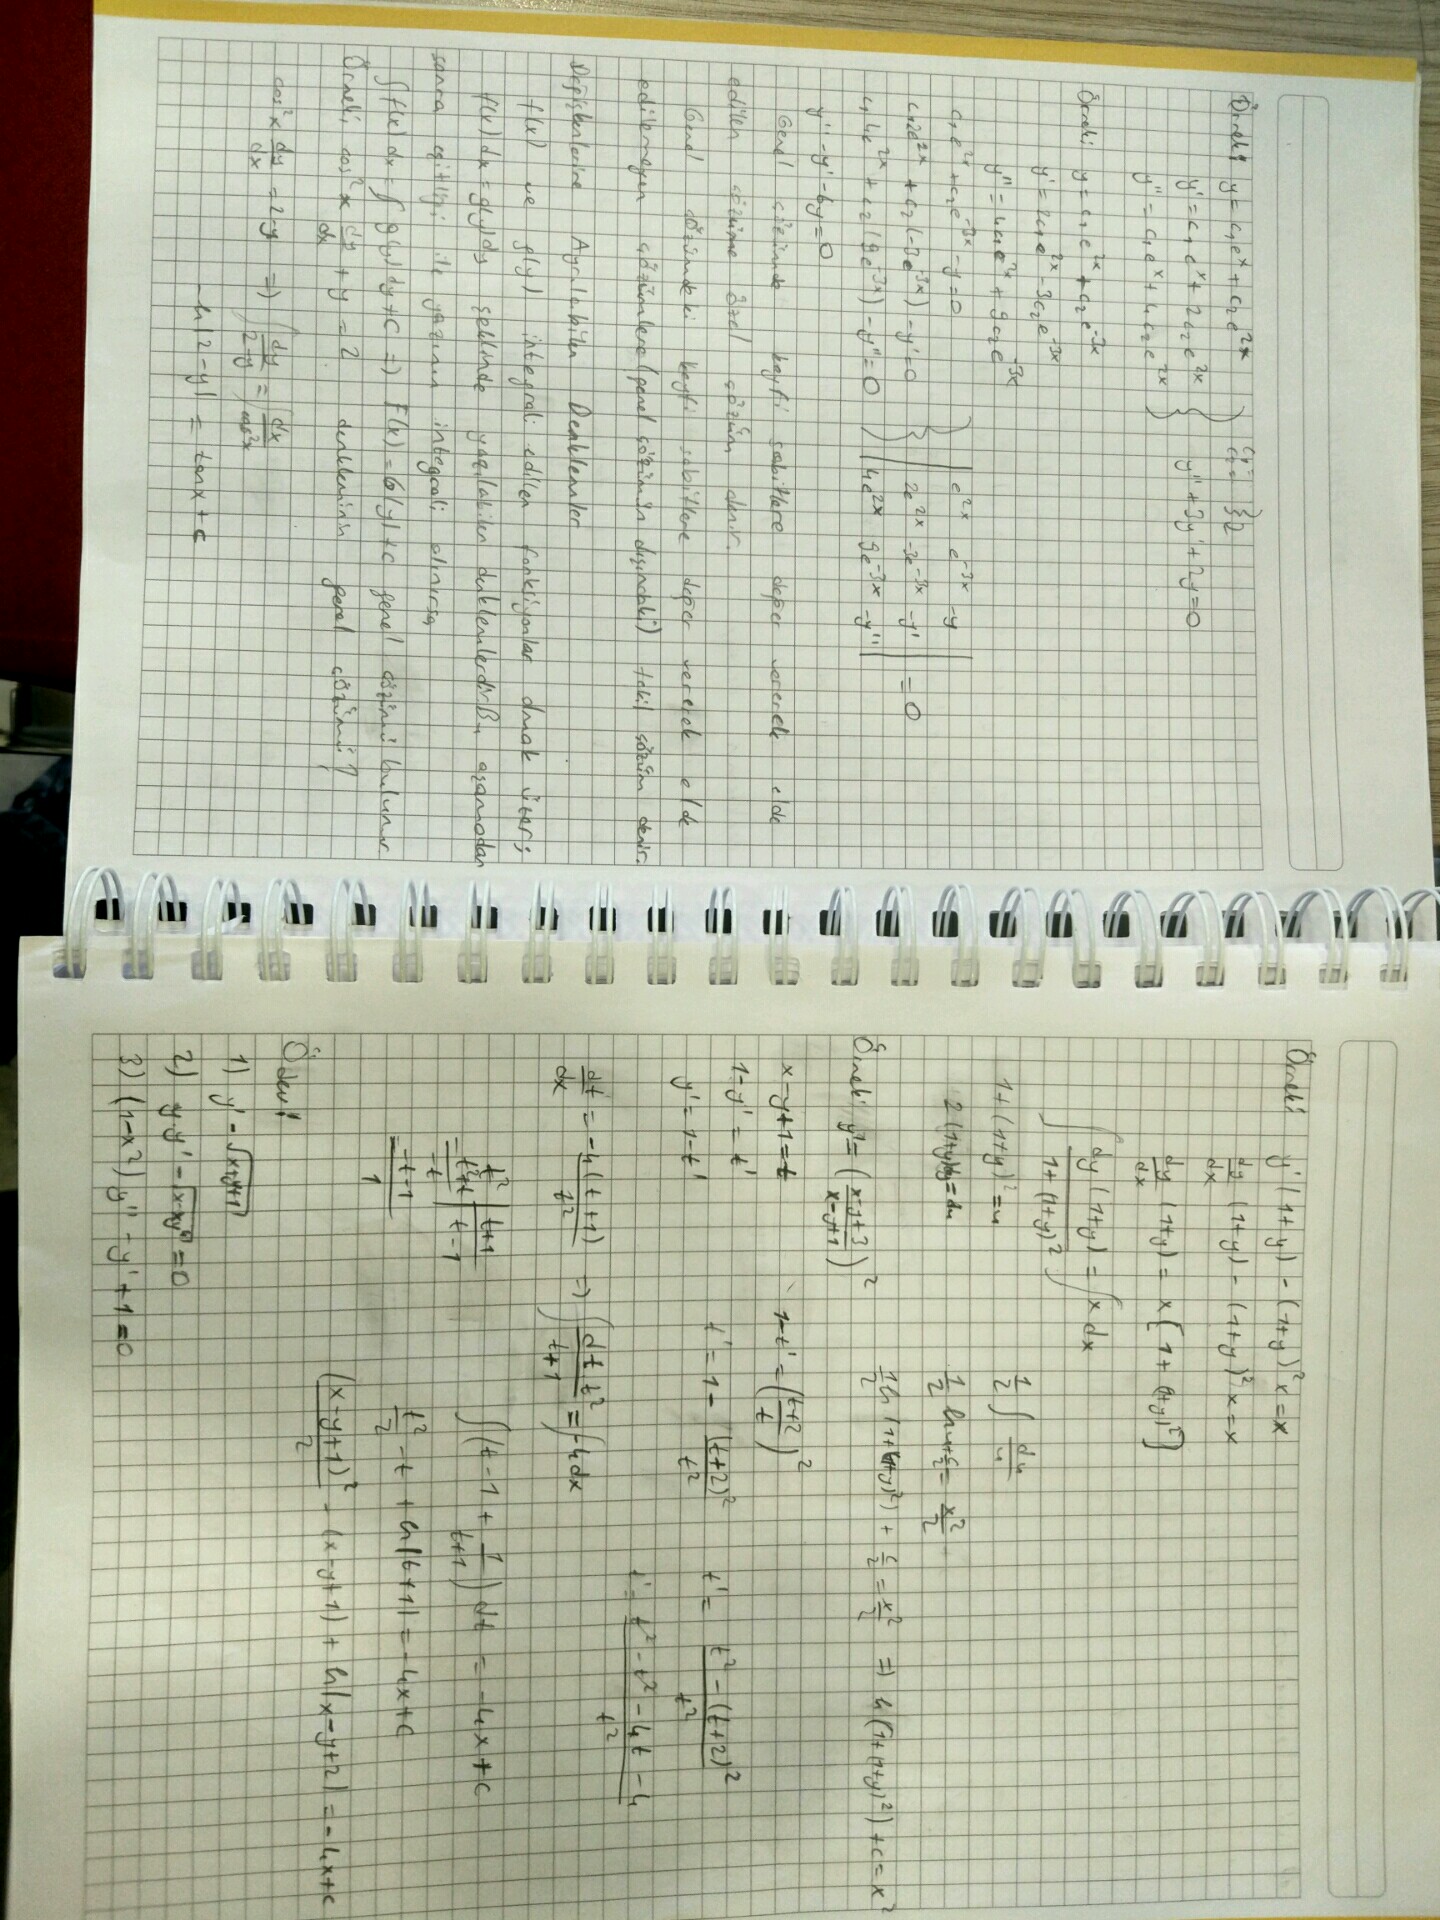 Örnek: y = c₁eˣ + c₂e²ˣ
y' = c₁eˣ + 2c₂e²ˣ
y'' = c₁eˣ + 4c₂e²ˣ
c₁=
c₂= } 2
y'' + 3y' + 2y = 0
Örnek: y = c₁e²ˣ + c₂e⁻³ˣ
y' = 2c₁e²ˣ - 3c₂e⁻³ˣ
y'' = 4c₁e²ˣ + 9c₂e⁻³ˣ
c₁e²ˣ + c₂e⁻³ˣ - y = 0
c₁2e²ˣ + c₂(-3e⁻³ˣ) - y' = 0
c₁4e²ˣ + c₂(9e⁻³ˣ) - y'' = 0
| e²ˣ e⁻³ˣ -y |
| 2e²ˣ -3e⁻³ˣ -y' | = 0
| 4e²ˣ 9e⁻³ˣ -y'' |
y'' - y' - 6y = 0
Genel çözümde keyfi sabitlere değer vererek elde
edilen çözüme özel çözüm denir.
Genel çözümdeki keyfi sabitlere değer vererek elde
edilemeyen çözümlere (genel çözümün dışındaki) tekil çözüm denir.
Değişkenlerine Ayrılabilen Denklemler
f(x) ve g(y) integrali edilen fonksiyonlar olmak üzere;
f(x) dx = g(y) dy şeklinde yazılabilen denklemlerdir. Bu aşamadan
sonra eşitliği ile yazının integrali alınırsa,
∫f(x) dx = ∫g(y) dy + C ⇒ F(x) = G(y) + c genel çözümü bulunur
Örnek: cos²x dy/dx + y = 2 denkleminin genel çözümü?
cos²x dy/dx = 2-y ⇒ ∫ dy/(2-y) = ∫ dx/cos²x
-ln|2-y| = tanx + c
Örnek: y'(1+y) - (1+y)²x = x
dy/dx (1+y) - (1+y)²x = x
dy/dx (1+y) = x[1 + (1+y)²]
∫ dy(1+y)/(1+(1+y)²) = ∫x dx
1+(1+y)² = u
2(1+y)dy = du
1/2 ∫ du/u
1/2 ln u + c/2 = x²/2
1/2 ln(1+(1+y)²) + c/2 = x²/2 ⇒ ln(1+(1+y)²) + c = x²
Örnek: y' = ((x-y+3)/(x-y+1))²
x-y+1 = t
1-y' = t'
y' = 1-t'
1-t' = ((t+2)/t)²
t' = 1 - (t+2)²/t²
t' = (t² - (t+2)²)/t²
t' = (t² - t² - 4t - 4)/t²
dt/dx = -4(t+1)/t² ⇒ ∫ dt t²/(t+1) = ∫-4dx
t² | t+1
-t²+t | t-1
-t
-t-1
1
∫(t-1 + 1/(t+1)) dt = -4x+c
t²/2 - t + ln|t+1| = -4x+c
(x-y+1)²/2 - (x-y+1) + ln|x-y+2| = -4x+c
Ödev:
1) y' - √(x+y+1)
2) y.y' - =0
3) (1-x²) y'' - y' + 1 = 0